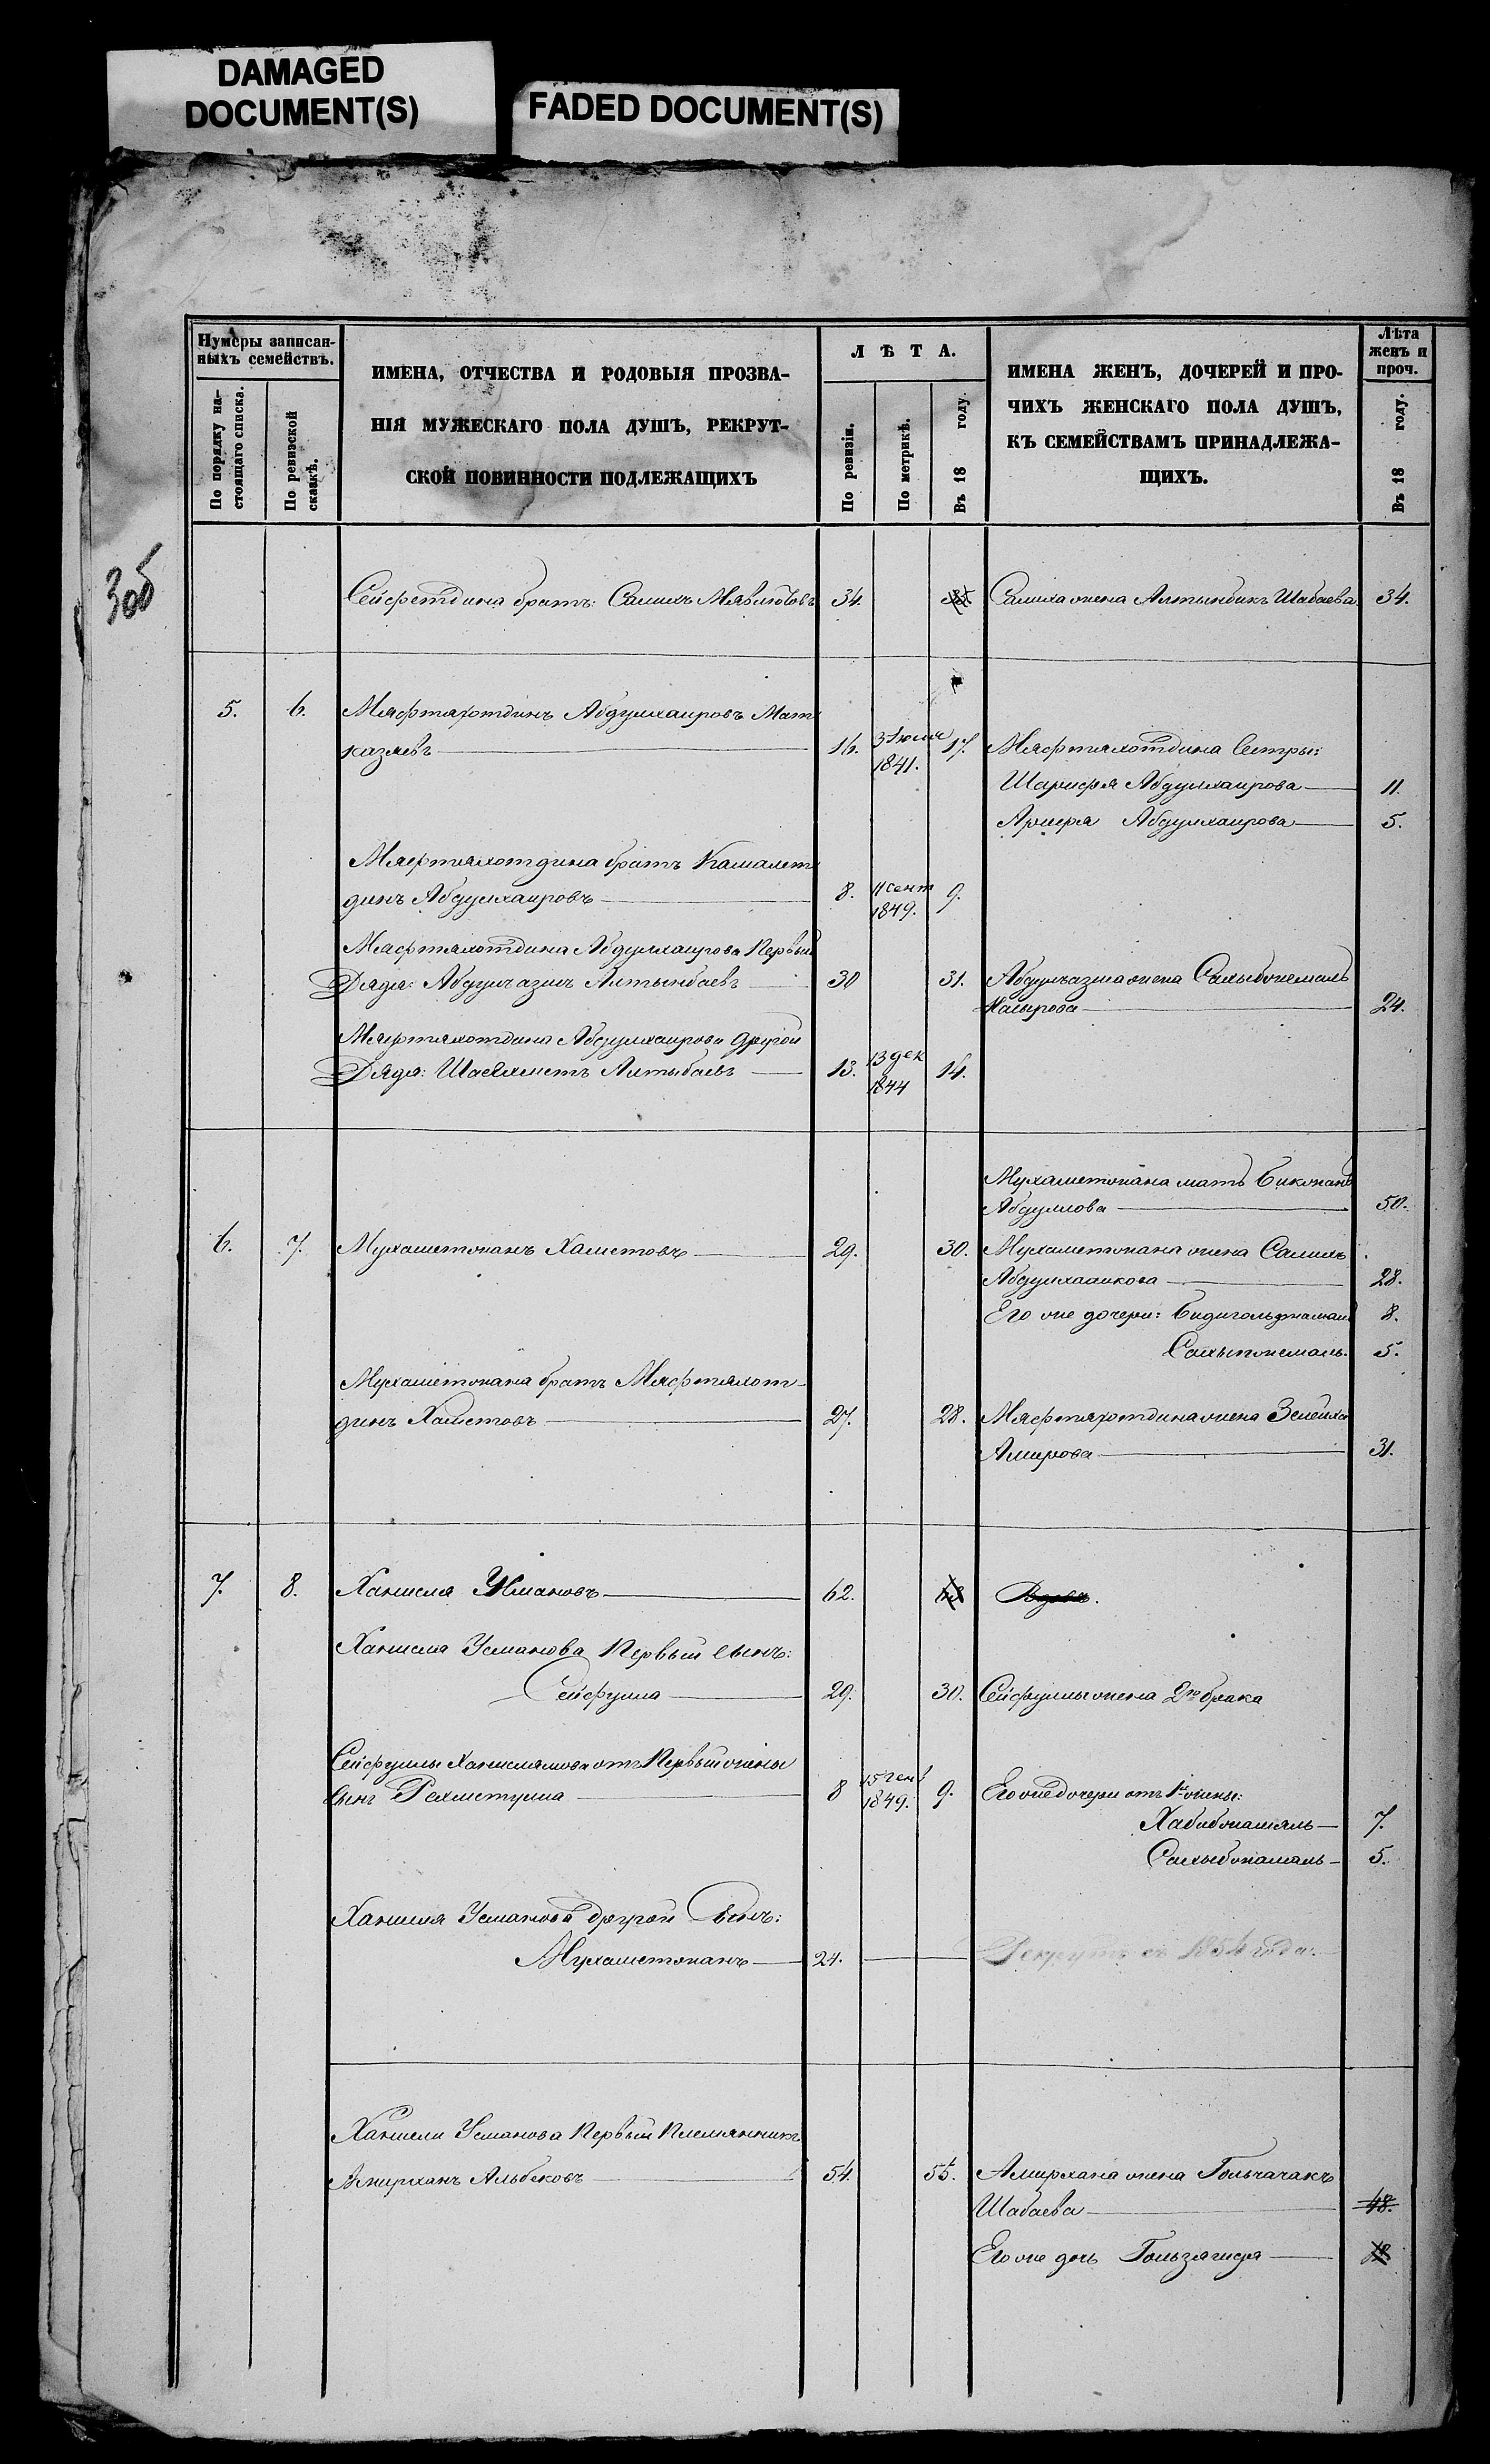 DAMAGED
DOCUMENT(S)
FADED DOCUMENT(S)
Нумеры записан-
ныхъ семействъ.
По порядку на-
стоящаго списка.
По ревизской
сказкѣ.
ИМЕНА, ОТЧЕСТВА И РОДОВЫЯ ПРОЗВА-
НІЯ МУЖЕСКАГО ПОЛА ДУШЪ, РЕКРУТ-
СКОЙ ПОВИННОСТИ ПОДЛЕЖАЩИХЪ
ЛѢТА.
По ревизіи.
По метрикѣ.
Въ 18 году.
ИМЕНА ЖЕНЪ, ДОЧЕРЕЙ И ПРО-
ЧИХЪ ЖЕНСКАГО ПОЛА ДУШЪ,
КЪ СЕМЕЙСТВАМЪ ПРИНАДЛЕЖА-
ЩИХЪ.
Лѣта
женъ и
проч.
Въ 18 году.
Сейфетдина братъ: Салихъ 34. Салиха жена Алтынбикъ Шабаева 34.
5. 6. Мяфтяхотдинъ Абдулхаировъ Мат
казяевъ 16. 3 Июля 1841. 17. Мяфтяхотдина Сестры:
Шарифя Абдулхаирова 11.
Абдулхаирова 5.
Мяфтяхотдина братъ Камалет
динъ Абдулхаировъ 8. 11 сент 1849. 9.
Мяфтяхотдина Абдулхаирова Первый
Дядя: Абдулъазисъ Алтынбаевъ 30 31. жена
24.
Мяфтяхотдина Абдулхаирова другой
Дядя: Шаехметъ Алтыбаевъ 13. 13 дек 1844 14.
Мухаметжана мать Бикжанъ
Абдуллова 50.
6. 7. Мухаметжанъ Хаметовъ 29. 30. Мухаметжана жена
28.
Его же дочери: 8.
5.
Мухаметжана братъ Мяфтяхот-
динъ Хаметовъ 27. 28. Мяфтяхотдина жена Зелейха
Амирова 31.
7. 8. Усмановъ 62. Вдовъ.
Усманова Первый сынъ:
Сейфулла 29. 30. Сейфуллы жена 2го брака
Сейфуллы отъ Первый жены
сынъ Рахметулла 8 1849. 9. Его же дочери отъ 1й жены:
Хабибжамаль 7.
Сахыбжамаль 5.
Усманова другой Сынъ:
Мухаметжанъ 24. Рекрутъ съ 1854 года.
Усманова Первый Племянникъ
Амирханъ Альбековъ 54. 55. Амирхана жена Гольчачакъ
Шабаева 48.
Его же дочь Гользягида